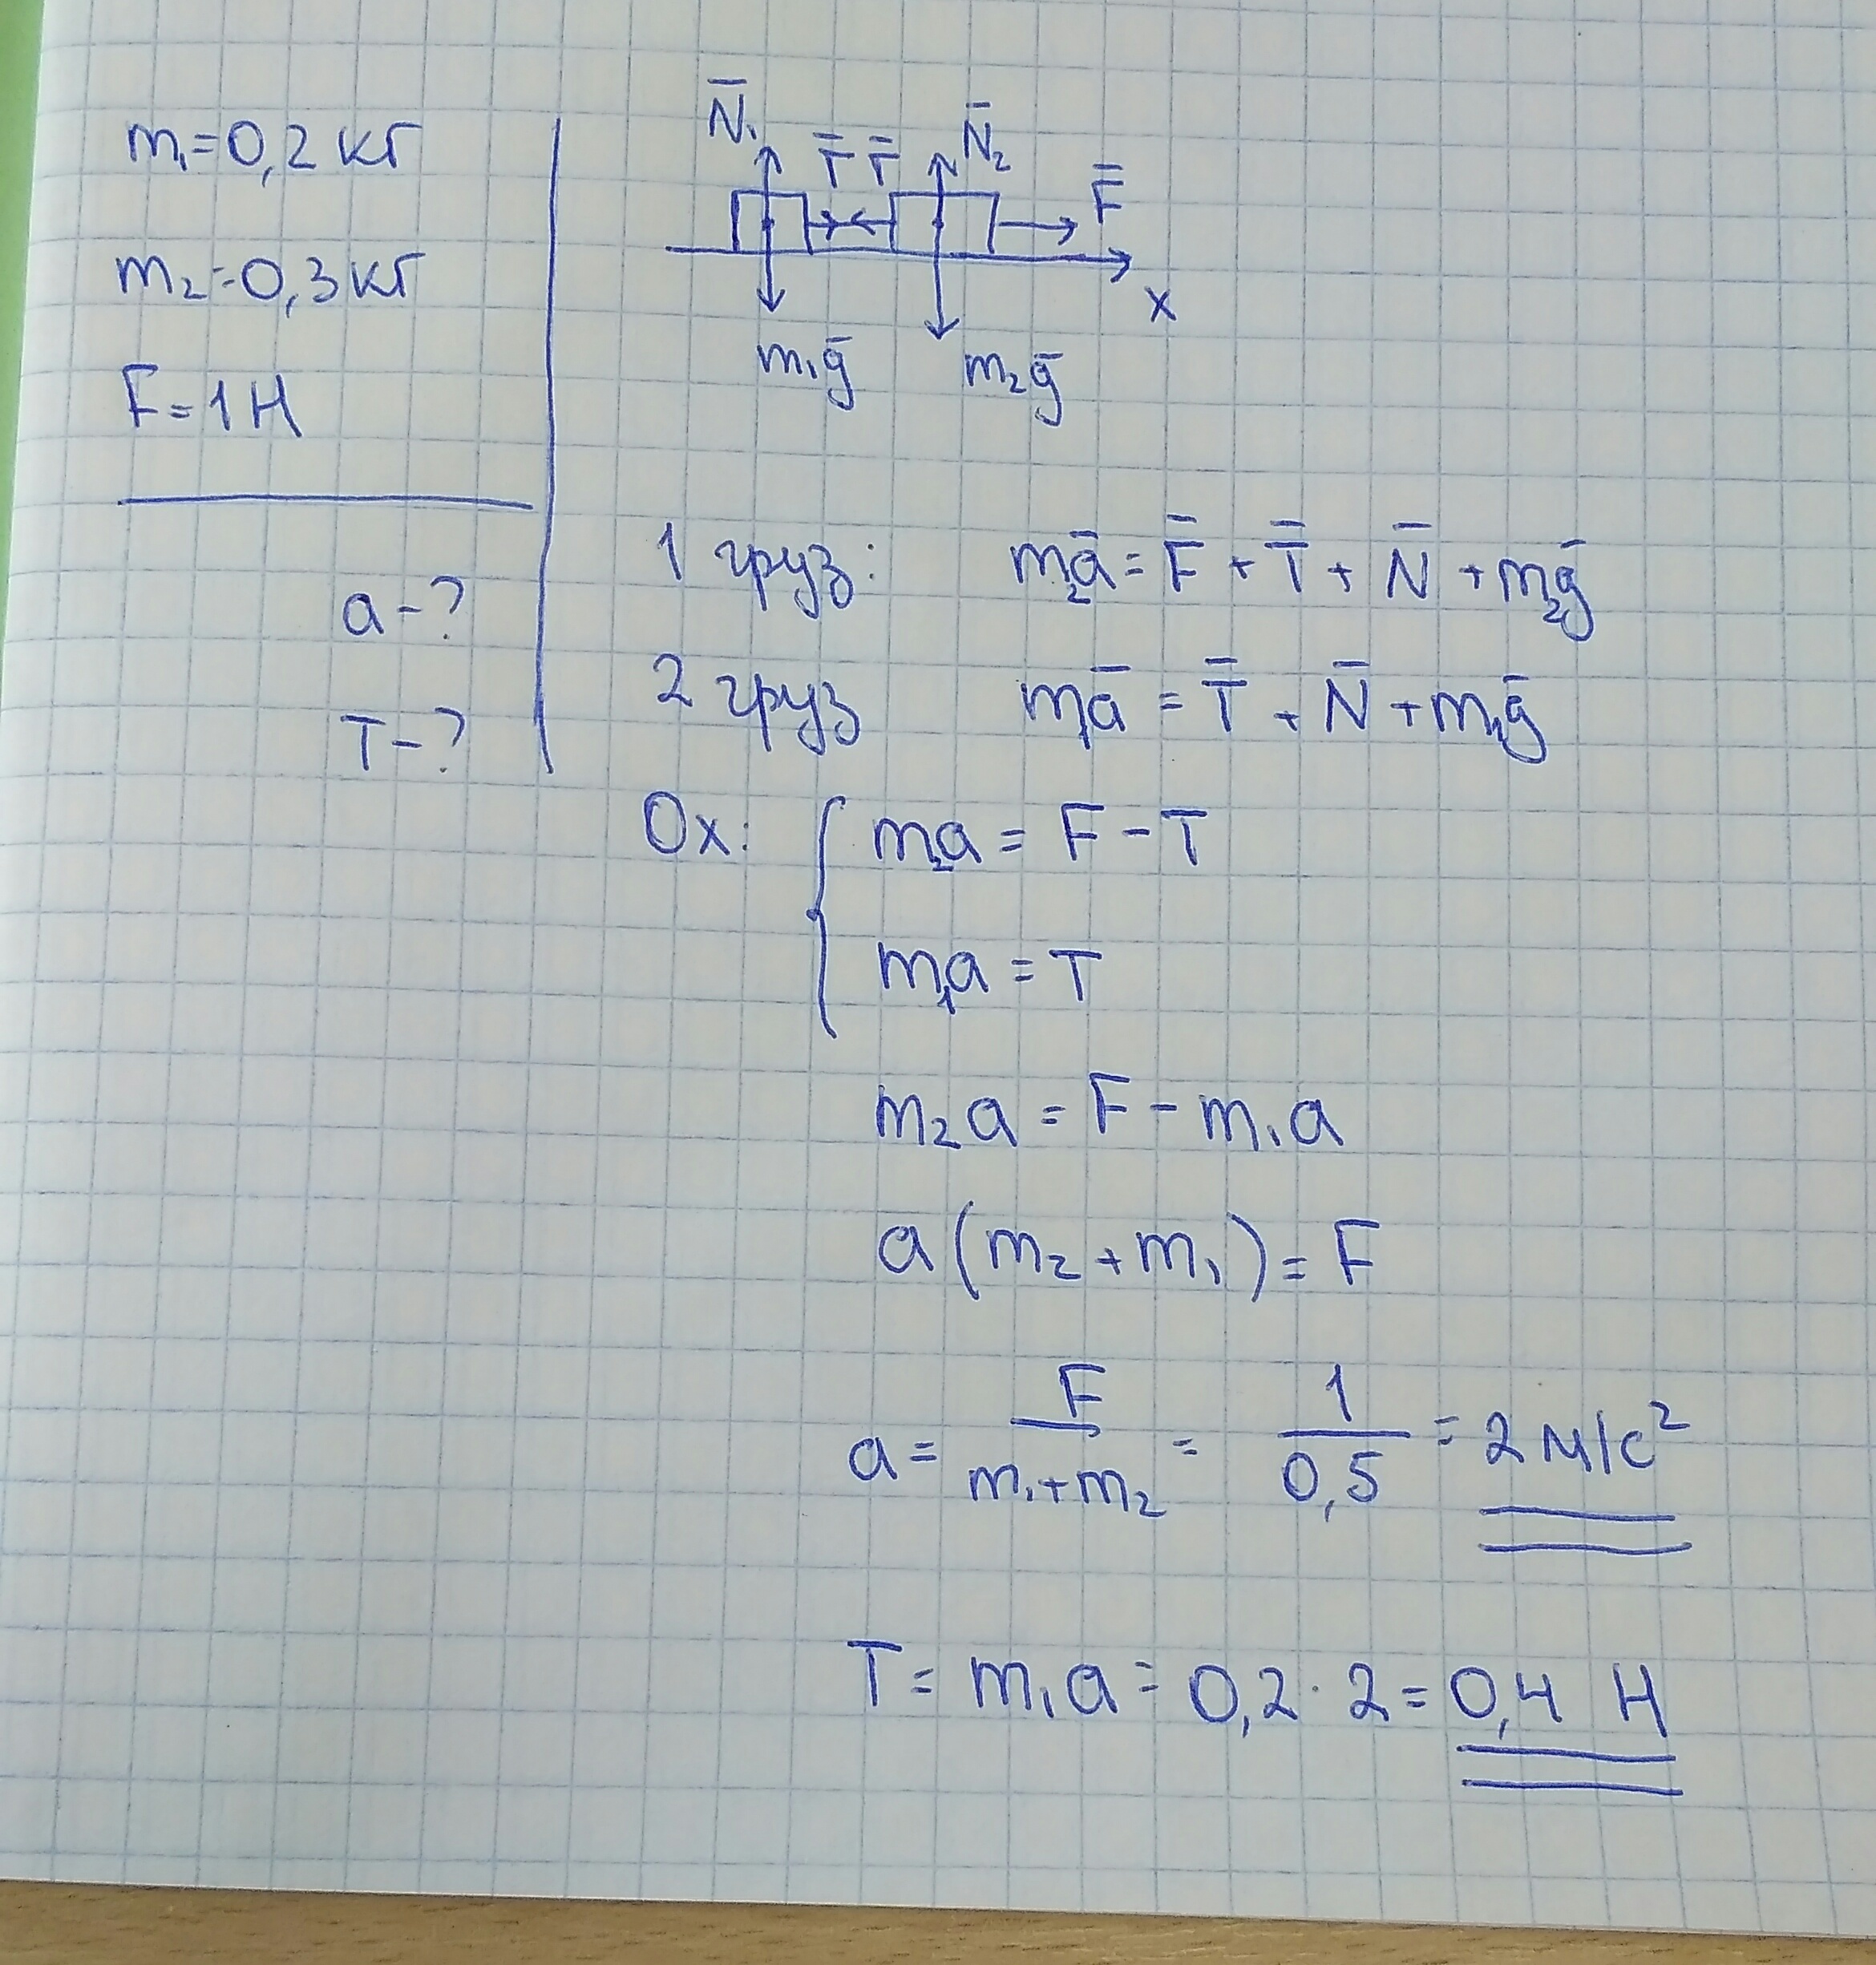 m₁=0,2 кг
m₂=0,3 кг
F=1 Н
a-?
T-?
N̄₁ T̄ T̄ N̄₂ F̄
x
m₁ḡ m₂ḡ
1 груз: m₂ā = F̄ + T̄ + N̄ + m₂ḡ
2 груз m₁ā = T̄ + N̄ + m₁ḡ
Ox: { m₂a = F - T
m₁a = T
m₂a = F - m₁a
a(m₂+m₁) = F
a = F/(m₁+m₂) = 1/0,5 = 2 м/с²
T = m₁a = 0,2 · 2 = 0,4 Н